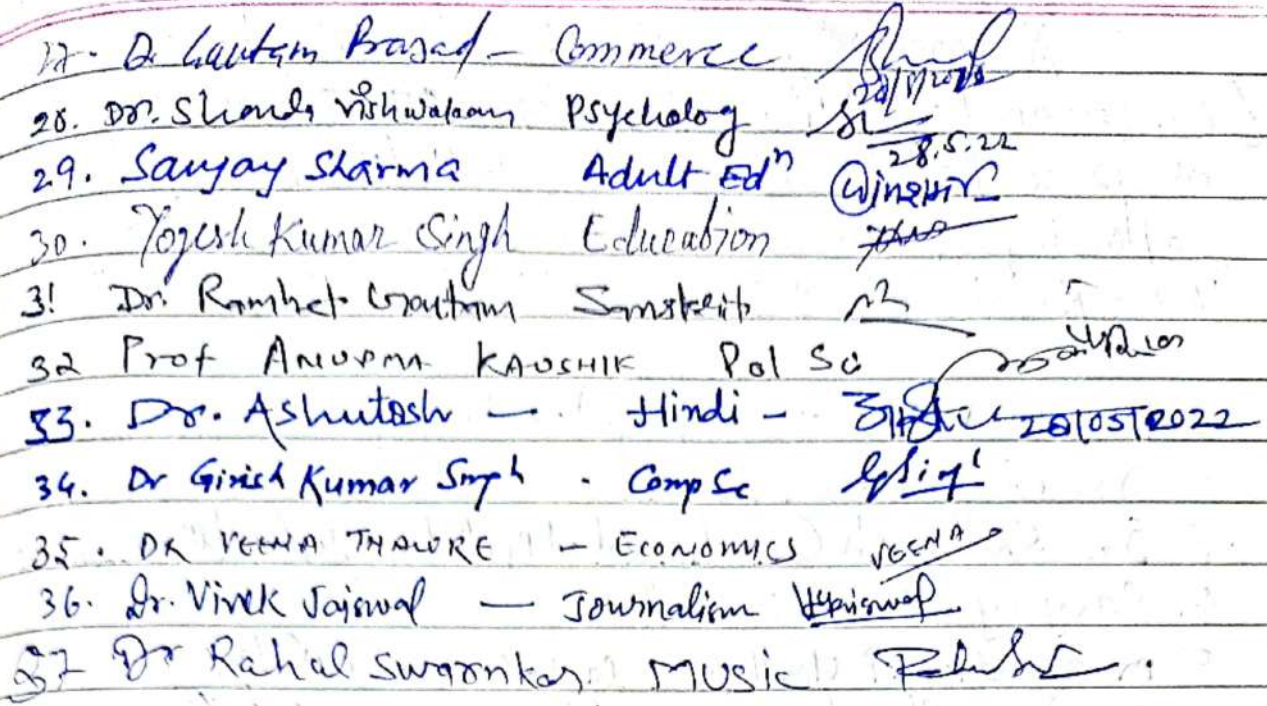 27. Dr Gautam Prasad - Commerce
28. Dr. Shanda Vishwakarm Psycholog
28.5.22
29. Sanjay Sharma Adult Edn
30. Yogesh Kumar Singh Education
31 Dr. Ramhet Goutam Sanskrit
32 Prof ANUPMA KAUSHIK Pol Sc
33. Dr. Ashutosh - Hindi - 28/05/2022
34. Dr Girish Kumar Singh - Comp Sc
35. DR VEENA THAWRE - ECONOMICS VEENA
36. Dr. Vivek Jaiswal - Journalism
37 Dr Rahul Swarnkar Music